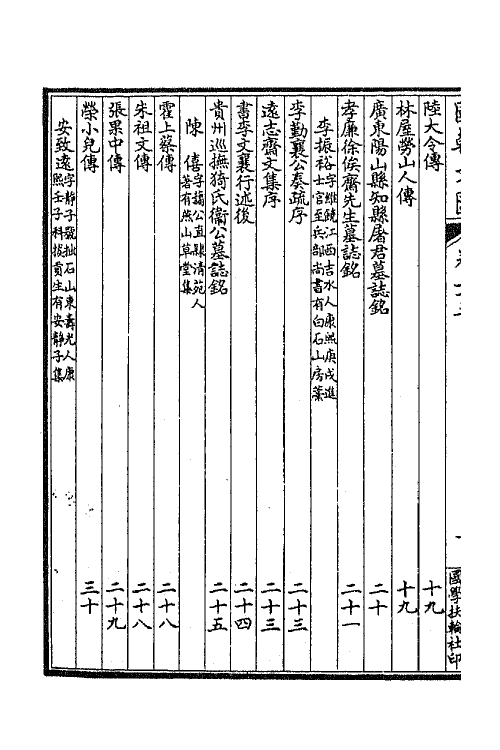 陸大令傳 十九
林屋勞山人傳 十九
廣東陽山縣知縣屠君墓誌銘 二十
孝廉徐俟齋先生墓誌銘 二十一
李振裕 字維饒江西吉水人康熙庚戌進
士官至兵部尚書有白石山房藁
李勤襄公奏疏序 二十三
遠志齋文集序 二十三
書李文襄行述後 二十四
貴州巡撫猗氏衞公墓誌銘 二十五
陳僖 字藹公直隸清苑人
著有燕山草堂集
霍上蔡傳 二十八
朱祖文傳 二十八
張果中傳 二十九
榮小兒傳 三十
安致遠 字靜子號拙石山東壽光人康
熙壬子科拔貢生有安靜子集
國學扶輪社印